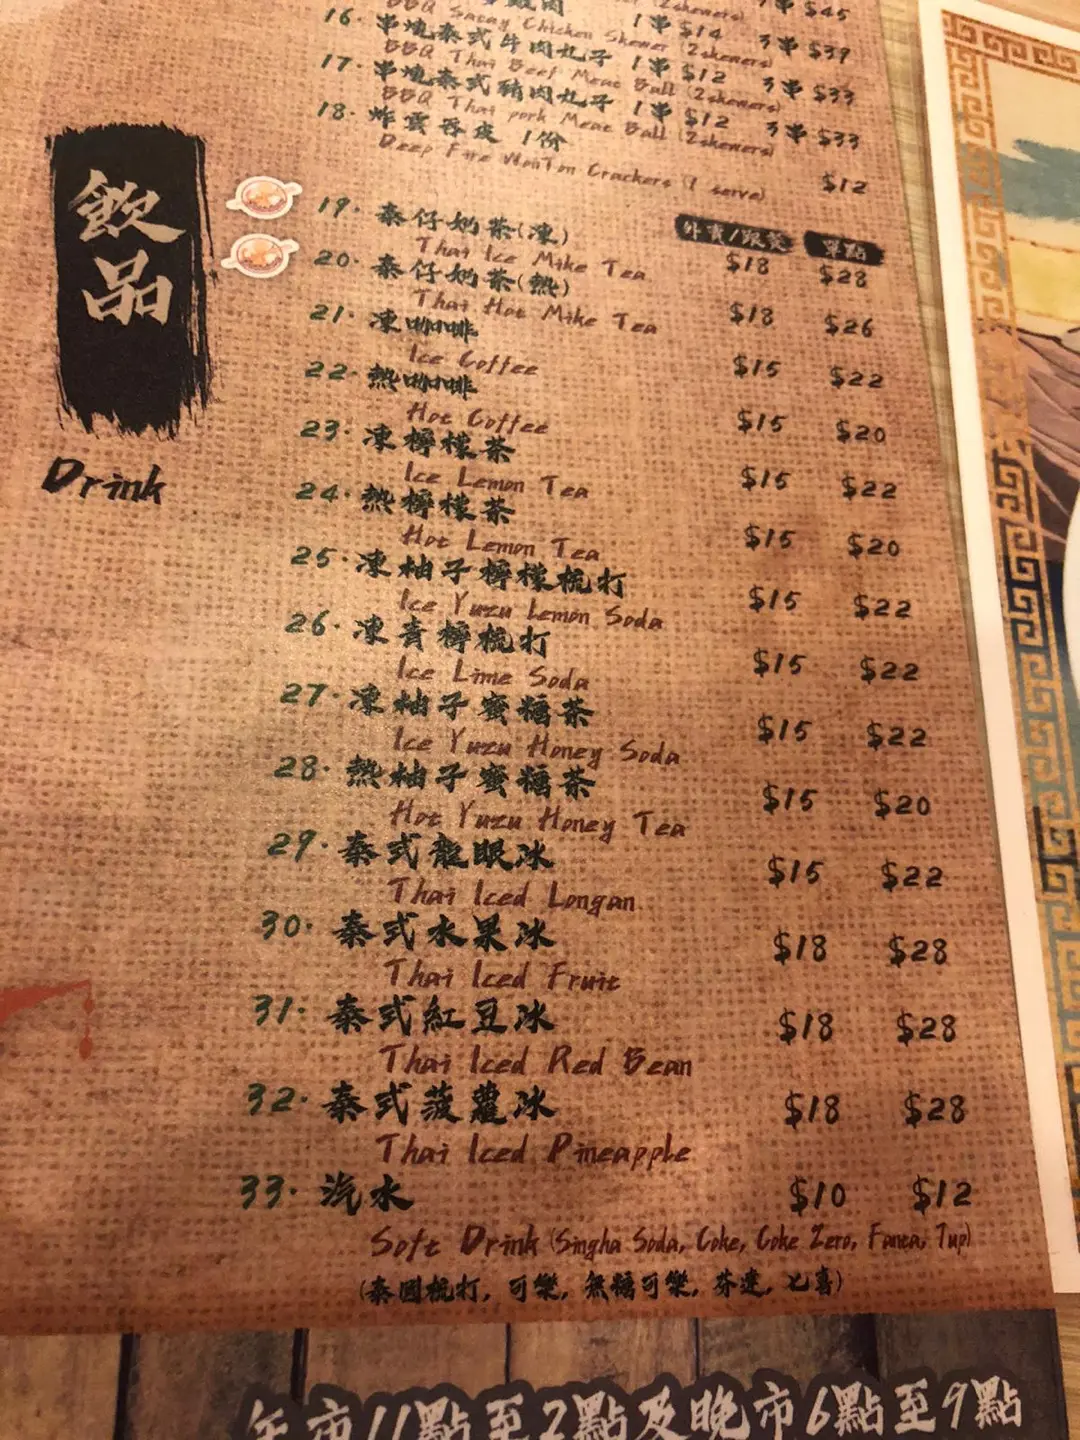 雞肉 1串$14 3串$45
BBQ Satay Chicken Skewer (2skewers)
16. 串燒泰式牛肉丸子 1串$12 3串$39
BBQ Thai Beef Meat Ball (2skewers)
17. 串燒泰式豬肉丸子 1串$12 3串$33
BBQ Thai pork Meat Ball (2skewers) 3串$33
18. 炸雲吞皮 1份 $12
Deep Fire WonTon Crackers (1 serve)
飲品
Drink
外賣/跟餐 單點
19. 泰仔奶茶(凍) $18 $28
Thai Ice Mike Tea
20. 泰仔奶茶(熱) $18 $26
Thai Hot Mike Tea
21. 凍咖啡 $15 $22
Ice Coffee
22. 熱咖啡 $15 $20
Hot Coffee
23. 凍檸檬茶 $15 $22
Ice Lemon Tea
24. 熱檸檬茶 $15 $20
Hot Lemon Tea
25. 凍柚子檸檬梳打 $15 $22
Ice Yuzu Lemon Soda
26. 凍青檸梳打 $15 $22
Ice Lime Soda
27. 凍柚子蜜糖茶 $15 $22
Ice Yuzu Honey Soda
28. 熱柚子蜜糖茶 $15 $20
Hot Yuzu Honey Tea
29. 泰式龍眼冰 $15 $22
Thai Iced Longan
30. 泰式水果冰 $18 $28
Thai Iced Fruit
31. 泰式紅豆冰 $18 $28
Thai Iced Red Bean
32. 泰式菠蘿冰 $18 $28
Thai Iced Pineapple
33. 汽水 $10 $12
Soft Drink (Singha Soda, Coke, Coke Zero, Fanta, 7up)
(泰國梳打, 可樂, 無糖可樂, 芬達, 七喜)
午市11點至2點及晚市6點至9點